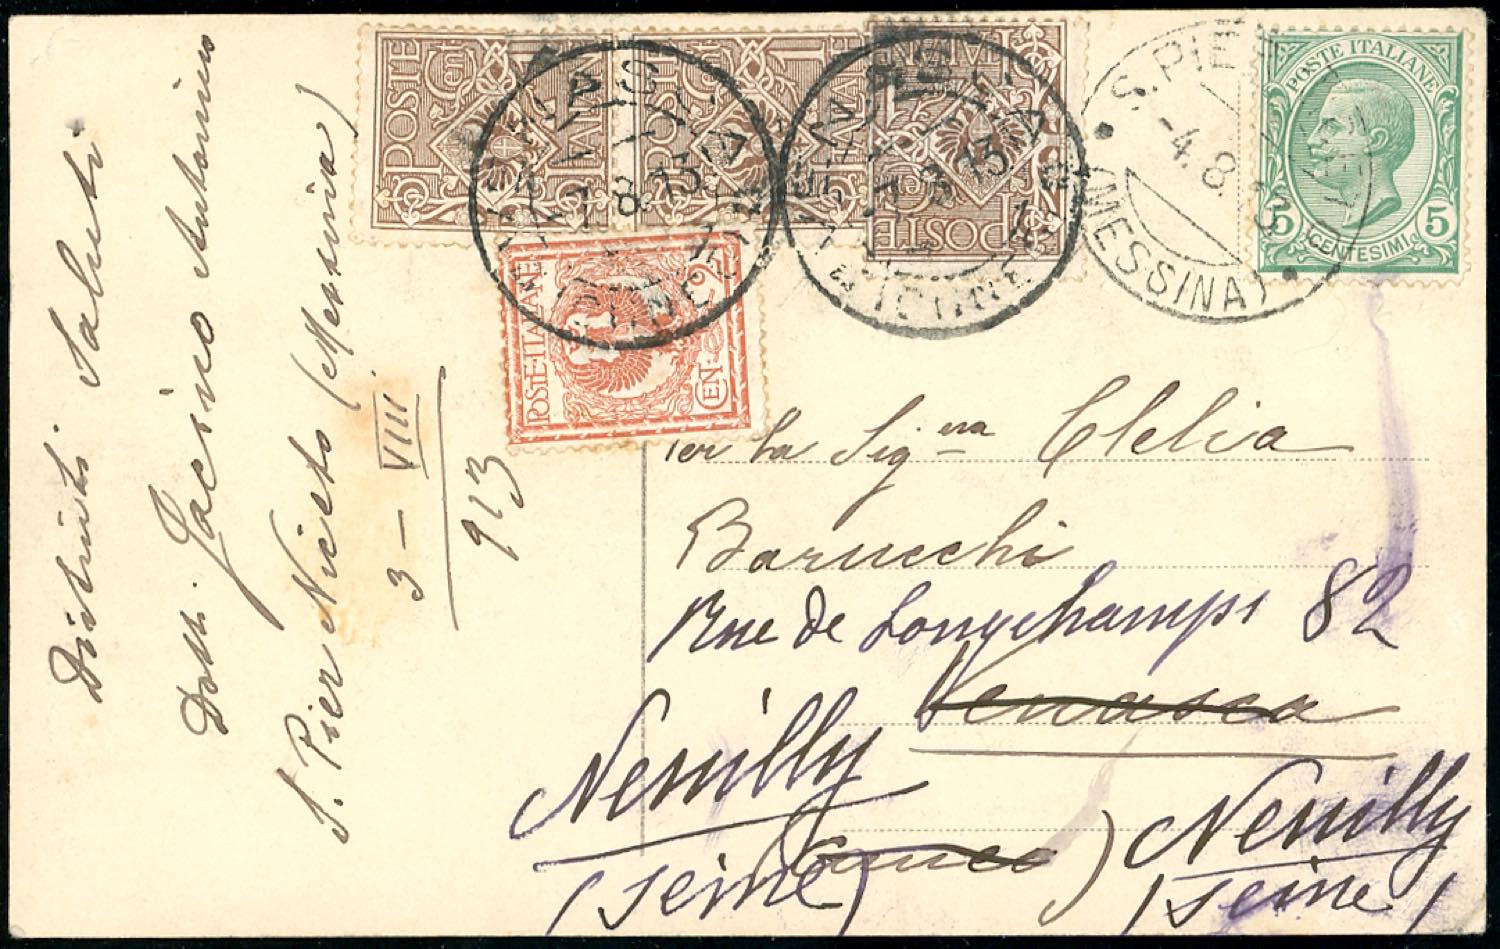 Distinti Saluti
Dott. Jacino Antonino
S. Pier Niceto (Messina)
3 - VIII
913
POSTE ITALIANE
5 CENTESIMI 5
POSTE ITALIANE
CENT. 2
POSTE
POSTE
POSTE
8 13
8 13
-4.8.13
(MESSINA)
Per la Sig.ra Clelia
Barucchi
Rue de Longchamps 82
Venasca
Neuilly
(Seine)
(Cuneo)
Neuilly
(Seine)